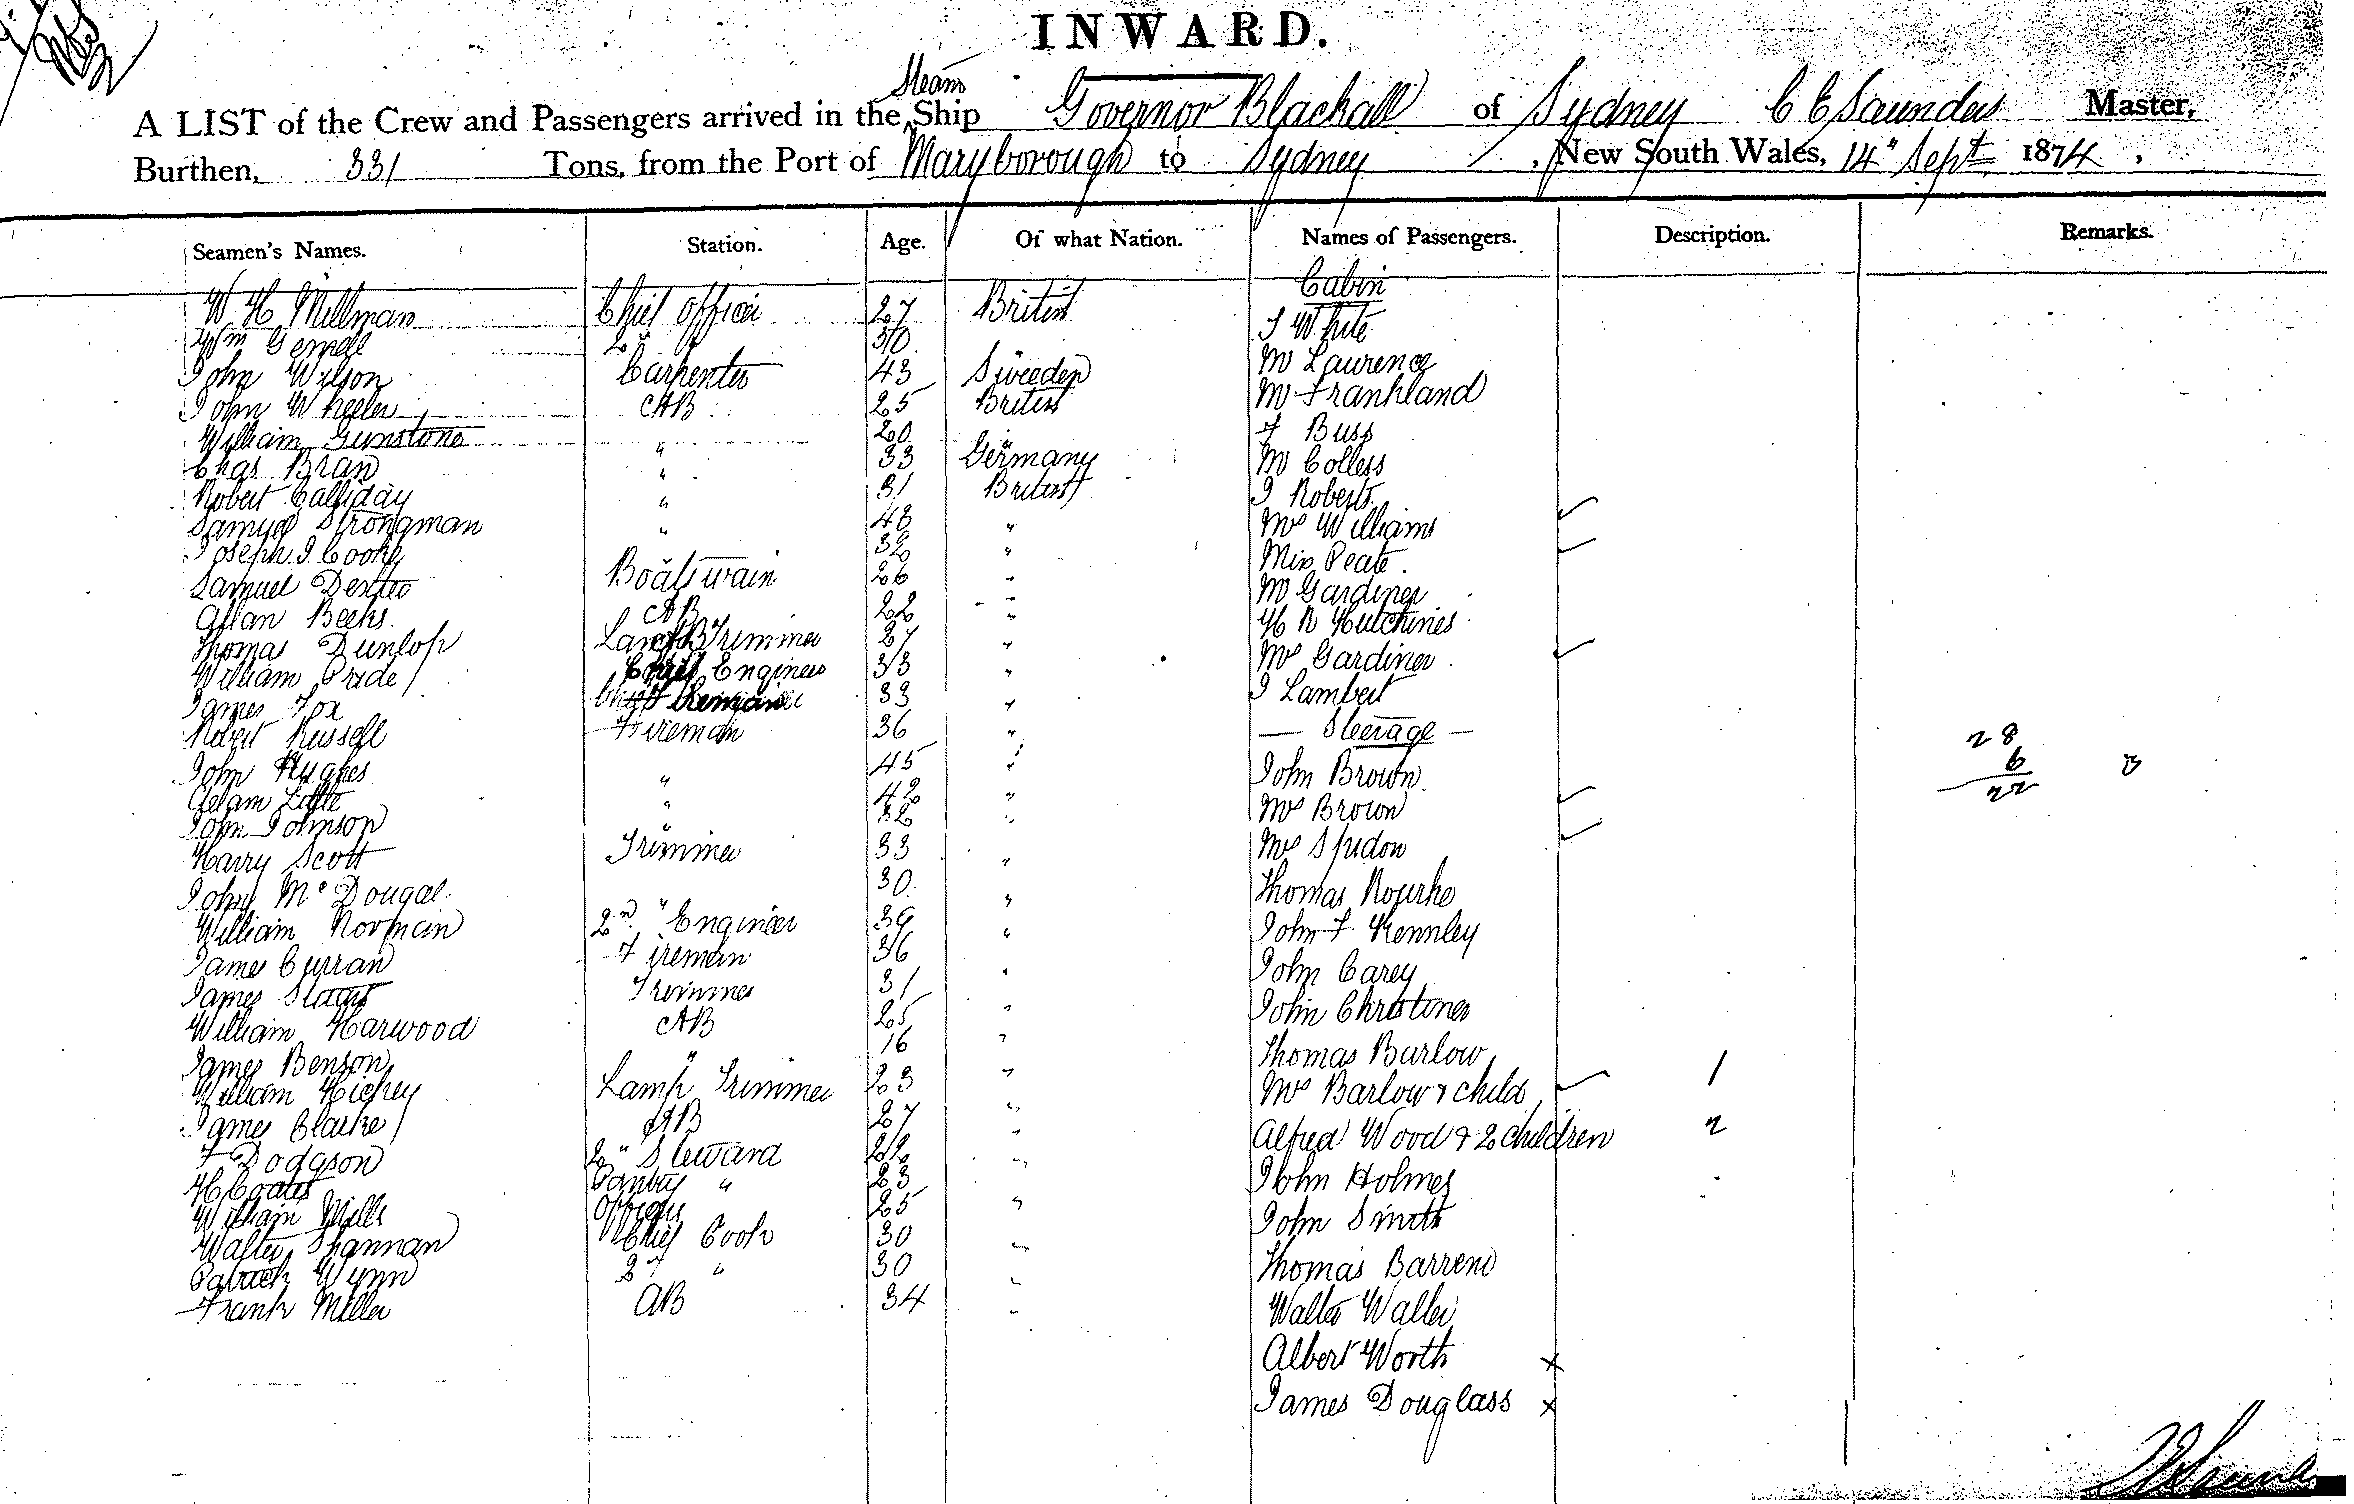 INWARD.
Steam
A LIST of the Crew and Passengers arrived in the Ship Governor Blackall of Sydney C C Saunders Master,
Burthen, 331 Tons, from the Port of Maryborough to Sydney, New South Wales, 14" Sept 1874,
Seamen's Names. Station. Age. Of what Nation. Names of Passengers. Description. Remarks.
Cabin
W H Millman Chief Officer 27 British J White
Wm Gemell 2 " 30 Mr Laurence
John Wilson Carpenter 43 Sweeden Mr Frankland
John Wheeler AB 25 British
William Gunstone " 20 F Buss
Chas Bran " 33 Germany Mr Colless
Robert Calliday " 31 British J Roberts
Samuel Strongman " 48 " Mrs Williams
Joseph J Cooke 32 " Miss Peate
Samuel Dexter Boatswain 26 " Mr Gardiner
Allan Beeks AB 22 " H R Hutchines
Thomas Dunlop Lamp Trimmer 27 "
William Pride Chief Engineer 33 " Mrs Gardiner
James Fox 33 " J Lambert
Robert Russell Fireman 36 " — Steerage — 28
John Hughes " 45 " John Brown 6
Adam " 42 " Mrs Brown 22
John Johnson " 32 "
Harry Scott Trimmer 33 " Mrs Spidon
John McDougal " 30 " Thomas Rourke
William Norman 2nd Engineer 39 " John F. Kennley
James Curran Fireman 36 " John Carey
James Stuart Trimmer 31 "
William Harwood AB 25 " John Christiner
James Benson " 16 " Thomas Barlow
William Hickey Lamp Trimmer 23 " Mrs Barlow & child 1
James Clarke AB 27 " Alfred Wood & 2 children 2
F Dodgson 2 " Steward 22 "
H Coates Pantry " 23 John Holmes
William Mills Officers 25 " John Smith
Walter Shannan Chief Cook 30 "
Patrick Wynn 2 " 30 " Thomas Barrend
Frank Miller AB 34 " Walter Waller
Albert Worth x
James Douglass x